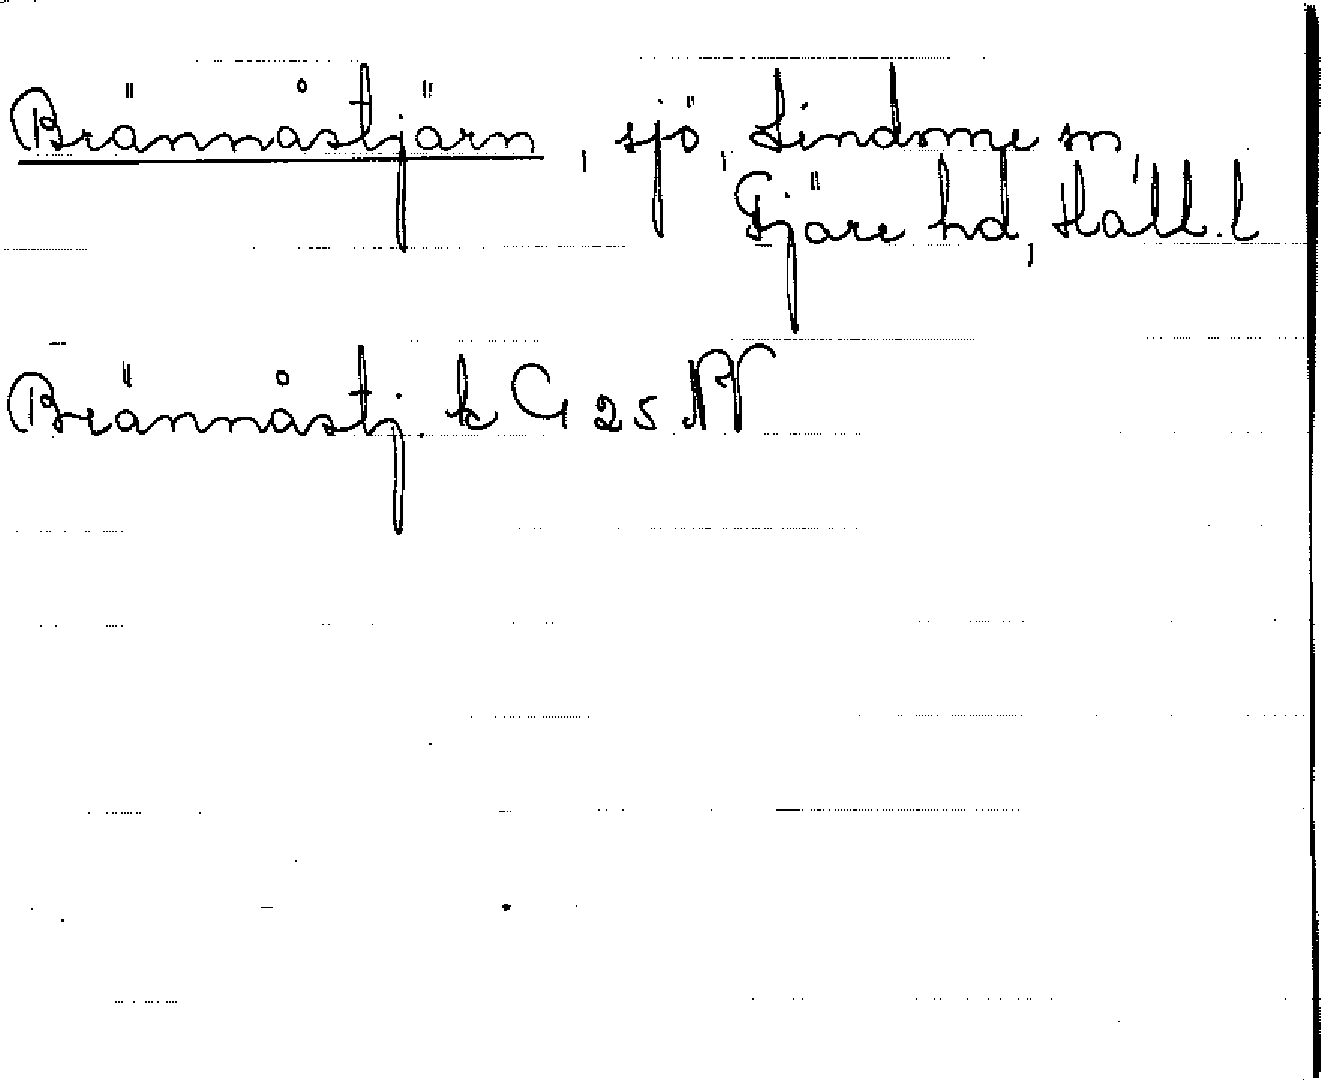 Brännåstjärn, sjö, Lindome sn,
Fjäre hd, Hall. l
Brännåstj. k G 25 NV